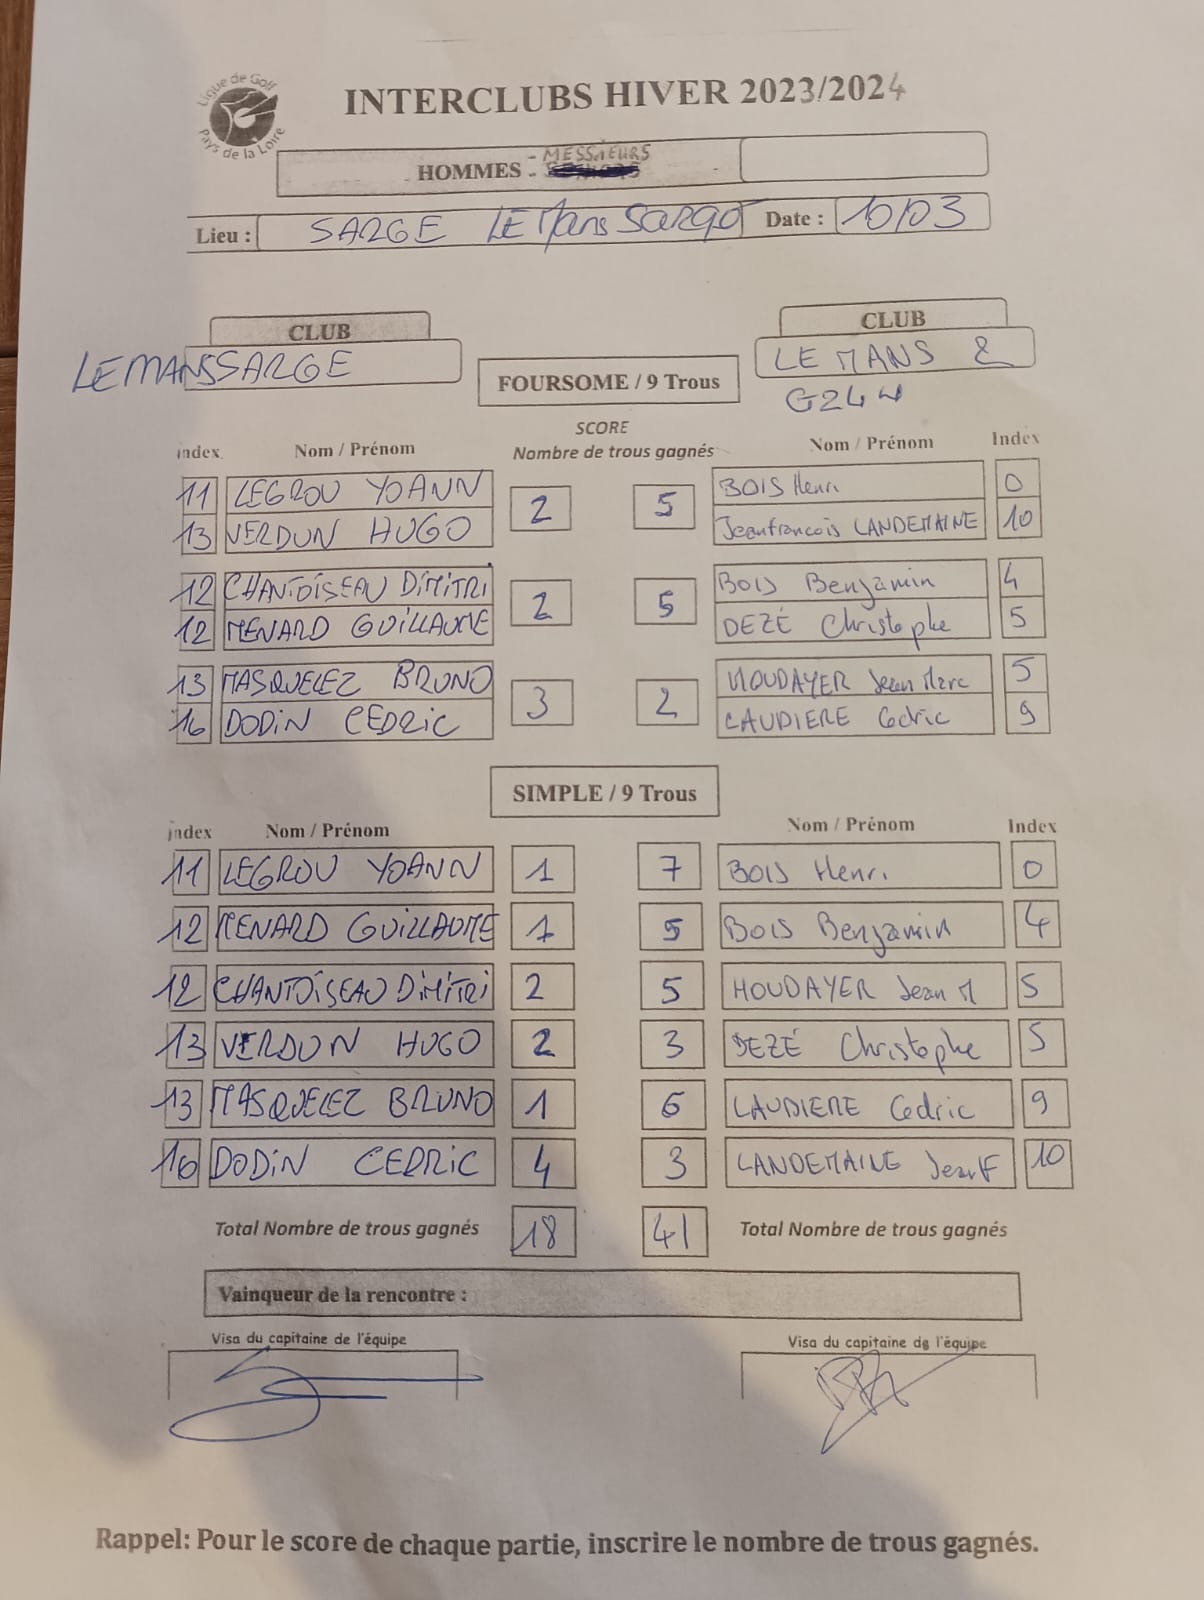 Ligue de Golf
Pays de la Loire
INTERCLUBS HIVER 2023/2024
HOMMES - MESSIEURS
Lieu : SARGE LE Mans Sargé Date : 10/03
CLUB CLUB
LE MANS SARGE LE MANS 2
FOURSOME / 9 Trous
G24H
SCORE
index Nom / Prénom Nombre de trous gagnés Nom / Prénom Index
11 LEGROU YOANN 2 5 BOIS Henri 0
13 VERDUN HUGO Jeanfrancois LANDEMAINE 10
12 CHANTOISEAU DIMITRI 2 5 BOIS Benjamin 4
12 MENARD GUILLAUME DEZÉ Christophe 5
13 MASQUELEZ BRUNO 3 2 HOUDAYER Jean Marc 5
16 DODIN CEDRIC LAUDIERE Cedric 9
SIMPLE / 9 Trous
index Nom / Prénom Nom / Prénom Index
11 LEGROU YOANN 1 7 BOIS Henri 0
12 MENARD GUILLAUME 1 5 BOIS Benjamin 4
12 CHANTOISEAU DIMITRI 2 5 HOUDAYER Jean M 5
13 VERDUN HUGO 2 3 DEZÉ Christophe 5
13 MASQUELEZ BRUNO 1 6 LAUDIERE Cedric 9
16 DODIN CEDRIC 4 3 LANDEMAINE Jean F 10
Total Nombre de trous gagnés 18 41 Total Nombre de trous gagnés
Vainqueur de la rencontre :
Visa du capitaine de l'équipe Visa du capitaine de l'équipe
Rappel: Pour le score de chaque partie, inscrire le nombre de trous gagnés.